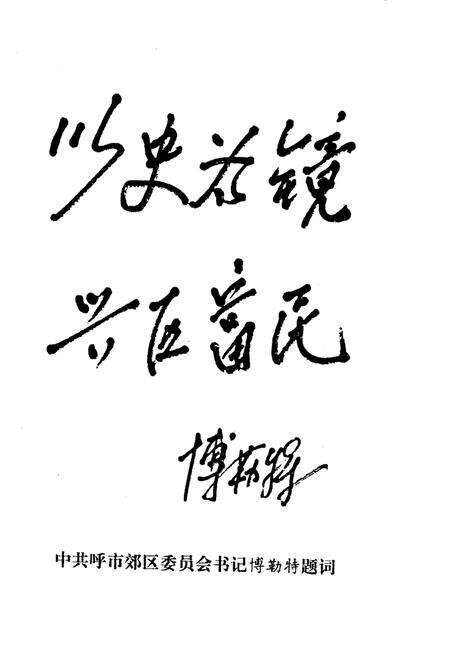 以史为镜
兴区富民
博勒特
中共呼市郊区委员会书记博勒特题词